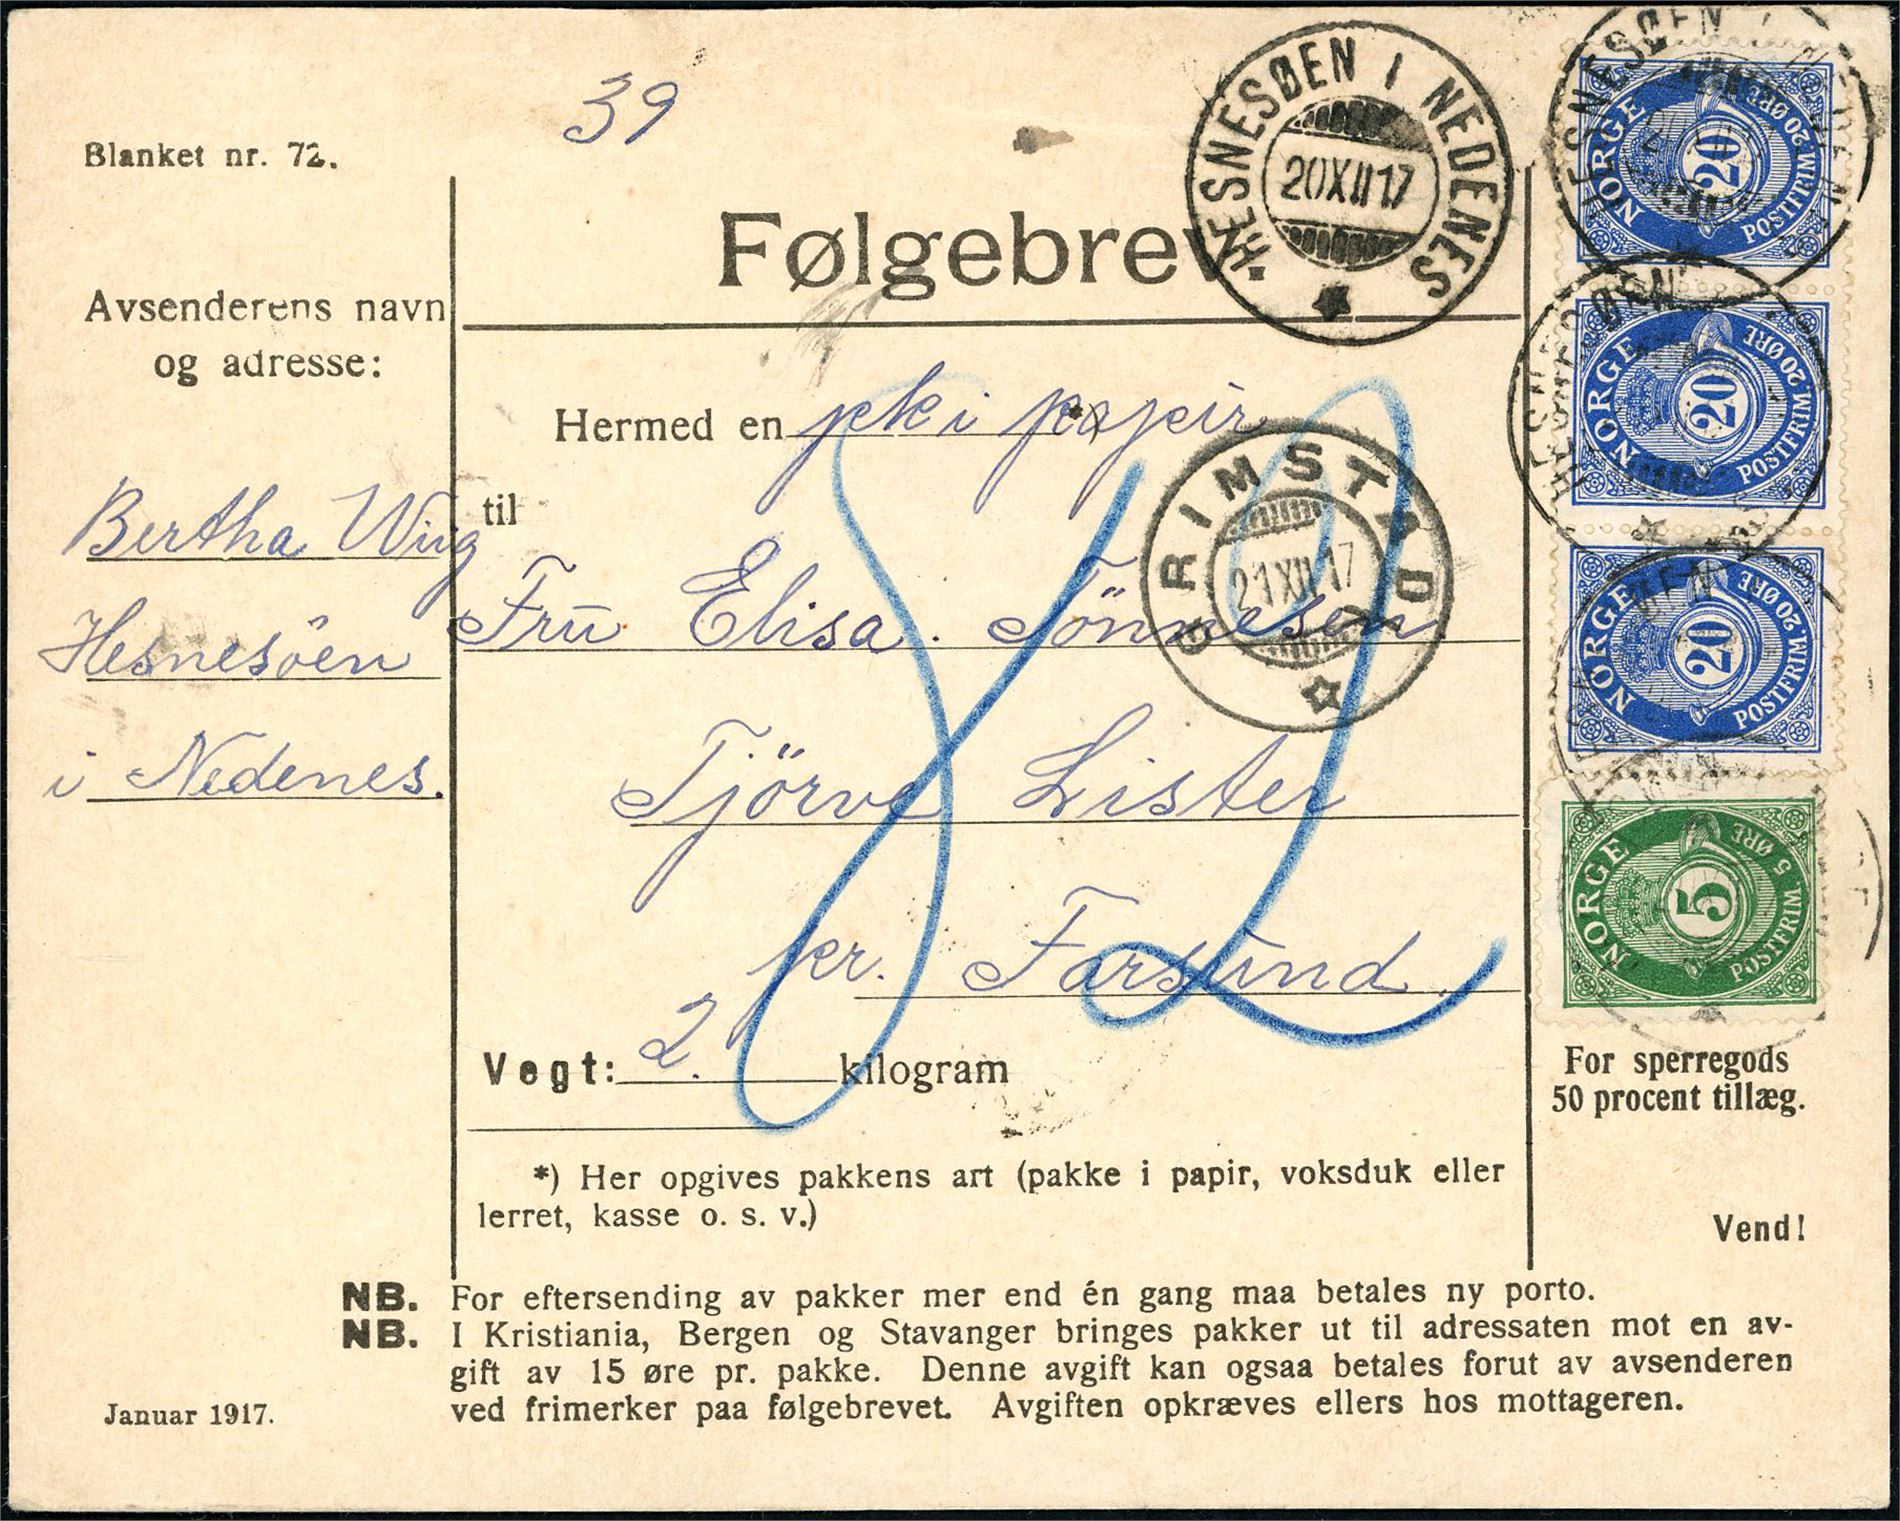 39
Blanket nr. 72.
Følgebrev.
HESNESØEN I NEDENES
20 XII 17
Avsenderens navn
og adresse:
Bertha Wiig
Hesnesöen
i Nedenes.
Hermed en pk i papir *)
til
Frū Elisa Tönnesen
Tjörve Lister
pr. Farsund.
GRIMSTAD
21 XII 17
82
Vegt: 2 kilogram
*) Her opgives pakkens art (pakke i papir, voksduk eller
lerret, kasse o. s. v.)
NORGE 20 POSTFRIM 20 ØRE
NORGE 20 POSTFRIM 20 ØRE
NORGE 20 POSTFRIM 20 ØRE
NORGE 5 POSTFRIM 5 ØRE
For sperregods
50 procent tillæg.
Vend!
NB. For eftersending av pakker mer end én gang maa betales ny porto.
NB. I Kristiania, Bergen og Stavanger bringes pakker ut til adressaten mot en av-
gift av 15 øre pr. pakke. Denne avgift kan ogsaa betales forut av avsenderen
ved frimerker paa følgebrevet. Avgiften opkræves ellers hos mottageren.
Januar 1917.